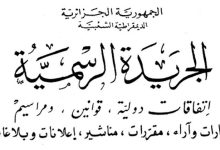 الجمهورية الجزائرية
الديمقراطية الشعبية
الجريدة الرسمية
إتفاقات دولية، قوانين، ومراسيم
رارات وآراء، مقررات، مناشير، إعلانات وبلاغا